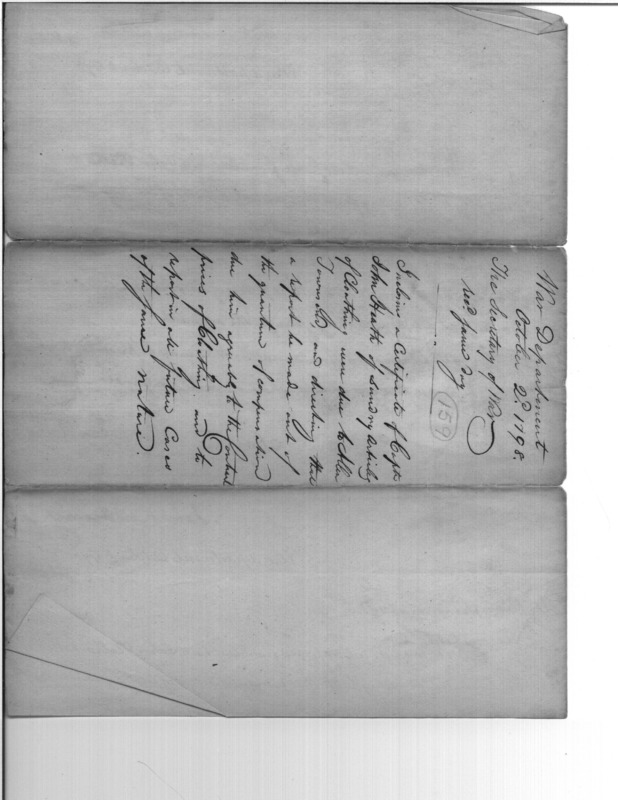 War Department
October 2d. 1798.
The Secretary of War
recd same day
159
Incloses a Certificate of Capt
John Heath of Sundry articles
of Cloathing were due to Allen
Townsend, and directing that
a report be made out of
the quantum of compensation
due him agreeably to the Contract
prices of Cloathing. and to
report in all future Cases
of the same nature.